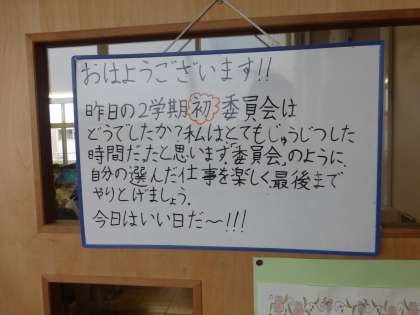 おはようございます!!
昨日の2学期初委員会は
どうでしたか?私はとてもじゅうじつした
時間だったと思います。「委員会」のように、
自分の選んだ仕事を楽しく、最後まで
やりとげましょう。
今日はいい日だ～!!!